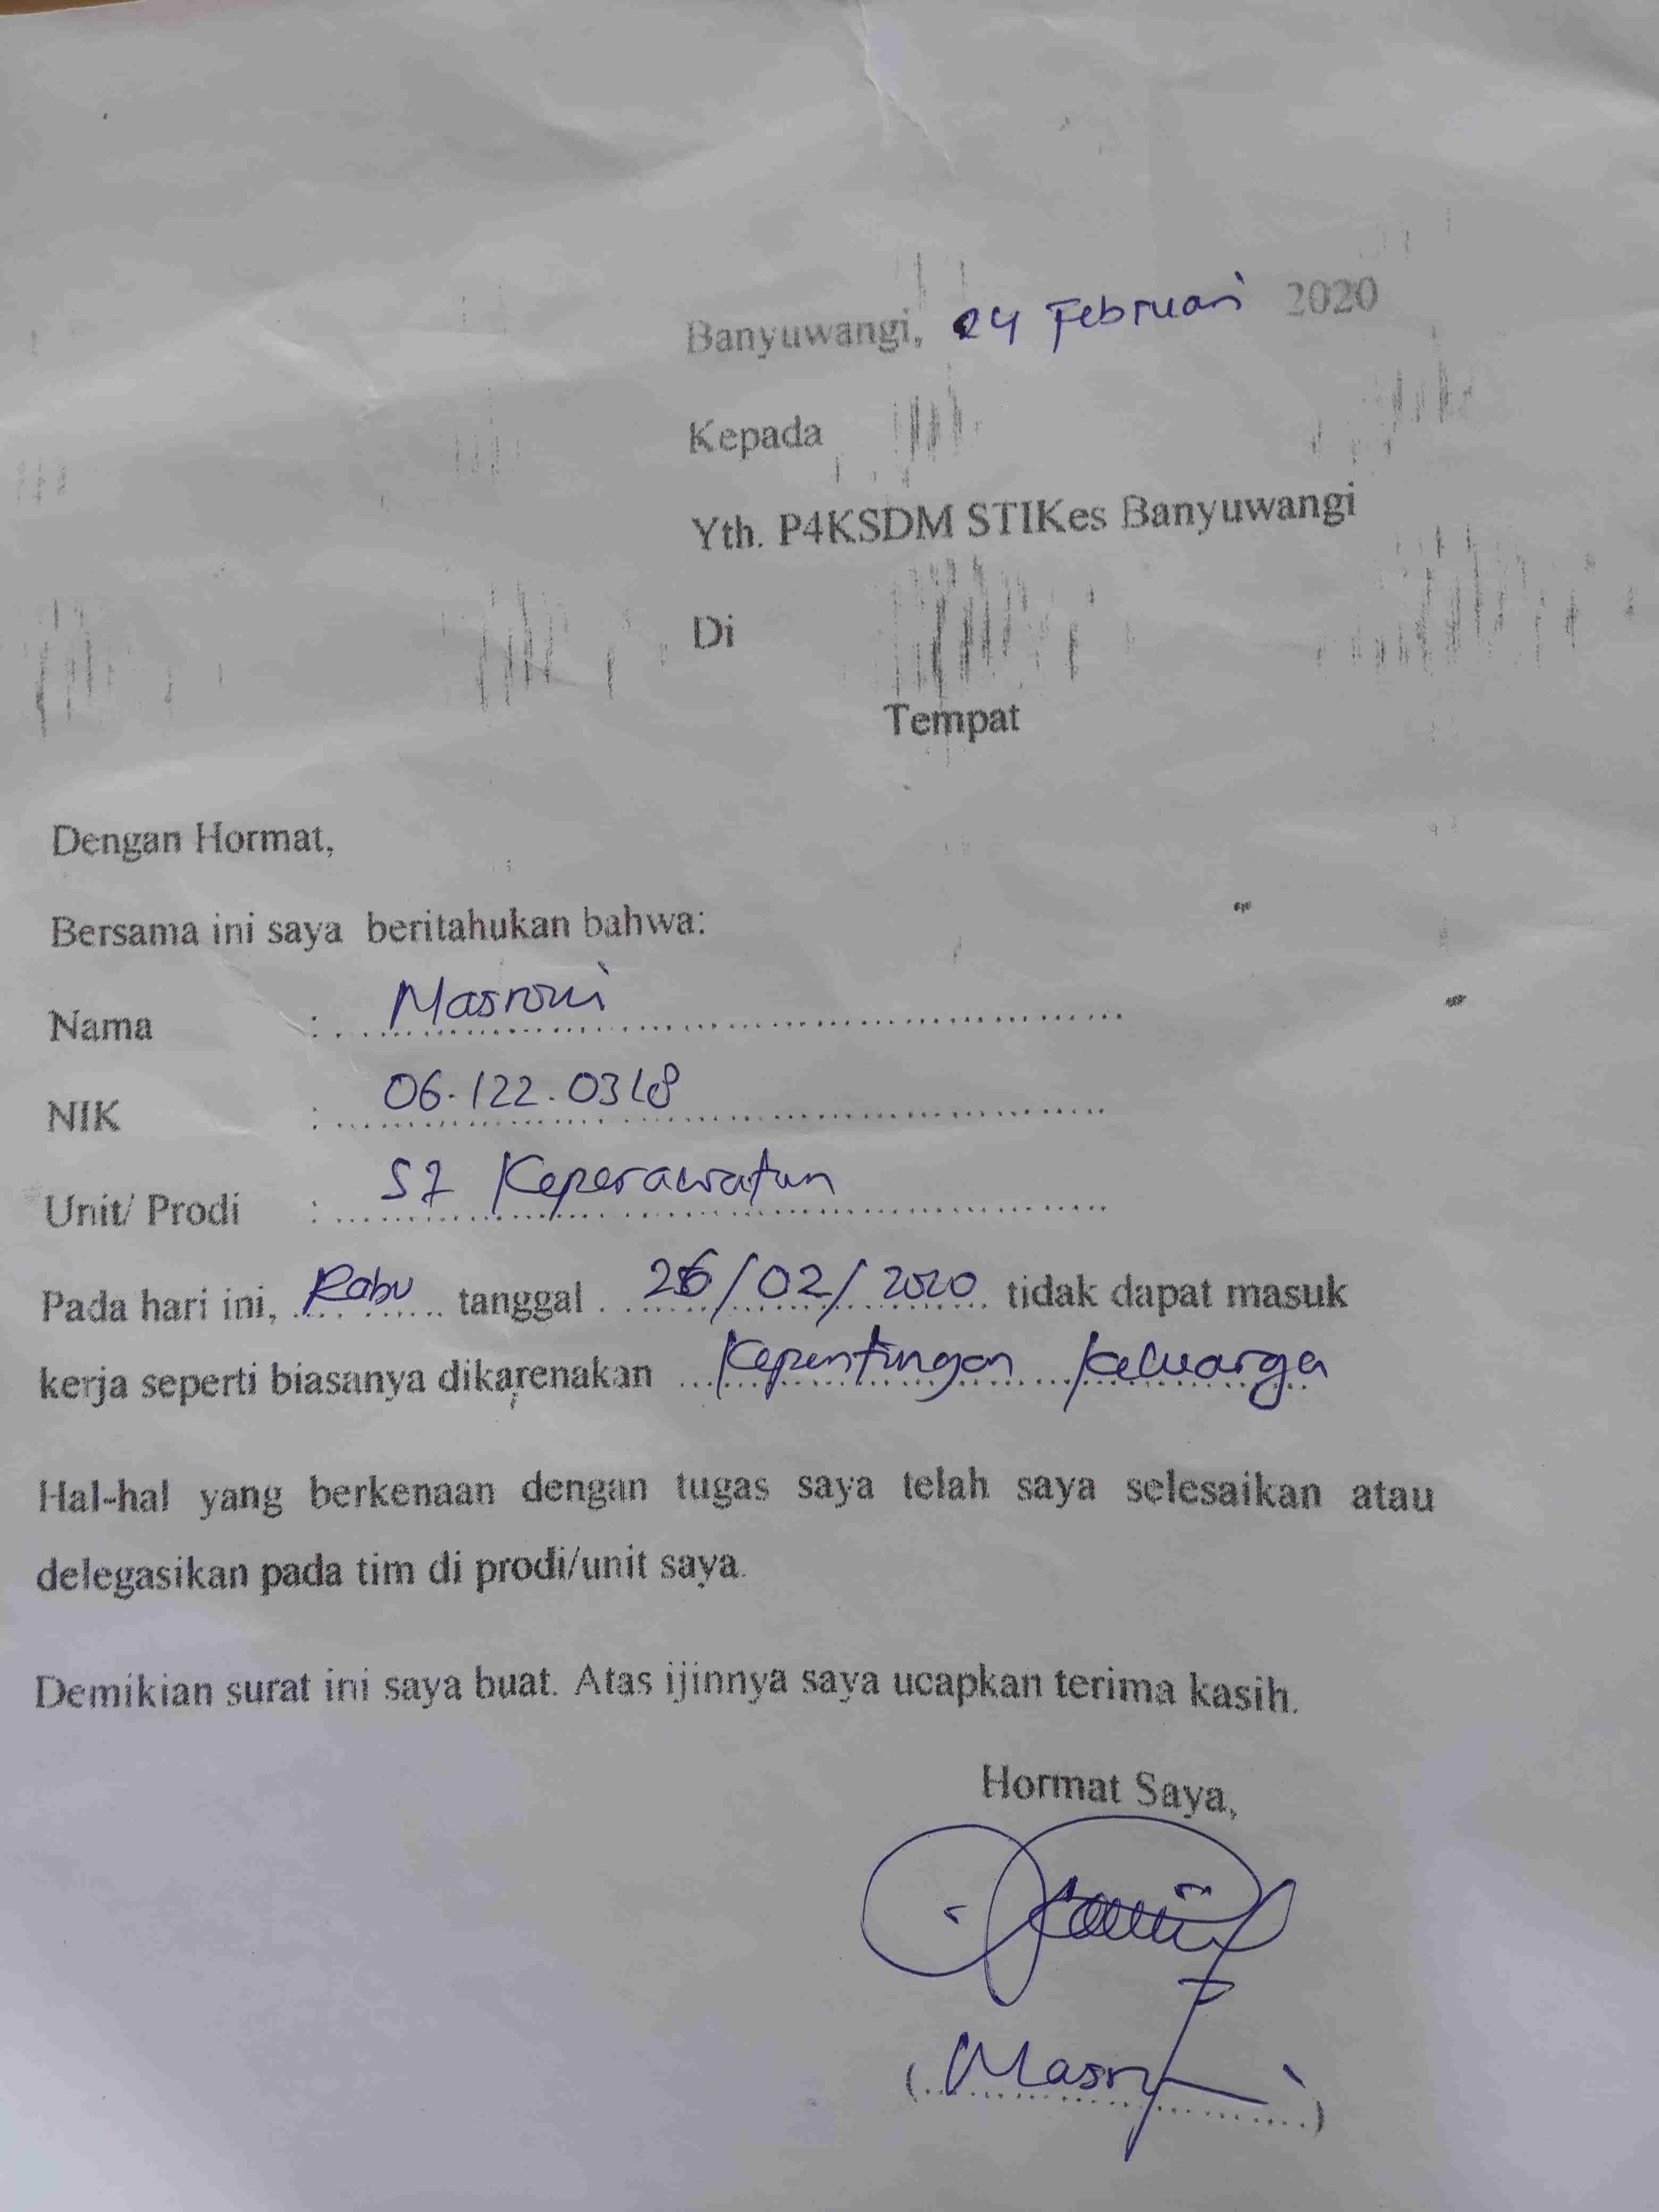 Banyuwangi, 24 Februari 2020
Kepada
Yth. P4KSDM STIKes Banyuwangi
Di
Tempat
Dengan Hormat,
Bersama ini saya beritahukan bahwa:
Nama : Masroni
NIK : 06.122.0318
Unit/ Prodi : S1 Keperawatan
Pada hari ini, Rabu tanggal 26/02/2020 tidak dapat masuk
kerja seperti biasanya dikarenakan Kepentingan keluarga
Hal-hal yang berkenaan dengan tugas saya telah saya selesaikan atau
delegasikan pada tim di prodi/unit saya.
Demikian surat ini saya buat. Atas ijinnya saya ucapkan terima kasih.
Hormat Saya,
(Masroni)